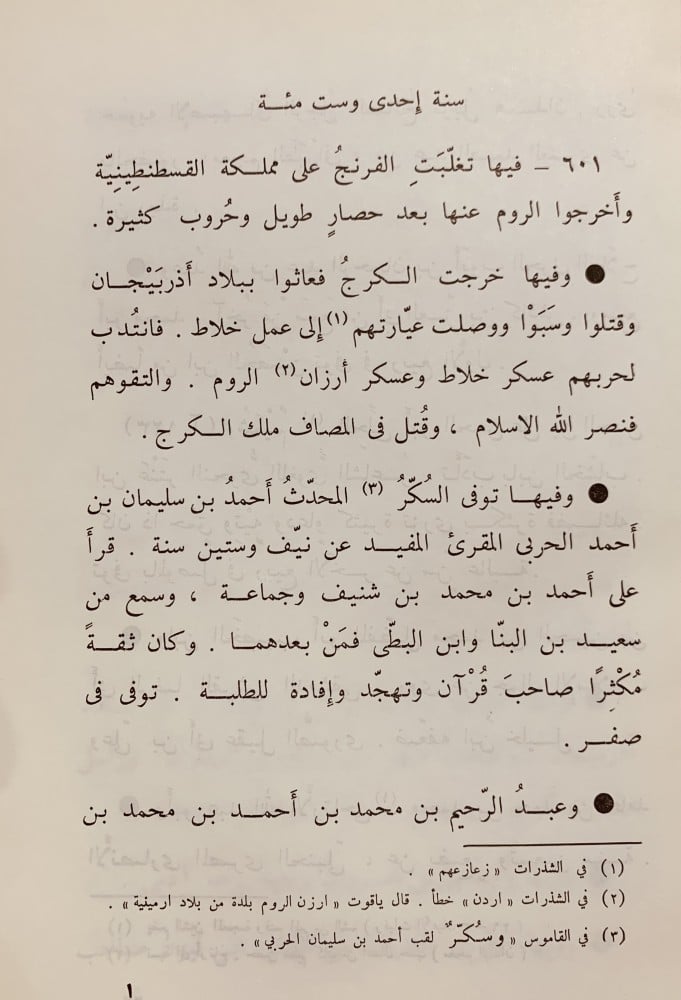 سنة إحدى وست مئـة
٦٠١ – فيها تغلّبَتِ الفرنجُ على مملـكة القسطنطِينِيّة
وأَخرجوا الروم عنها بعد حصارٍ طويل وحُروب كثيرة .
● وفيها خرجت الـكرجُ فعاثوا ببلاد أَذربَيْجـان
وقتلوا وسَبَوْا ووصلت عيّارتهم (١) إلى عمل خلاط . فانتُدب
لحربهم عسكر خلاط وعسكر أرزان (٢) الروم . والتقوهم
فنصر الله الاسلام ، وقُتل فى المصاف ملك الـكرج .
● وفيهـا توفى السُكّرُ (٣) المحدّثُ أَحمدُ بن سليمان بن
أَحمد الحربى المقرئ المفيـد عن نيّف وستين سنة . قرأَ
على أَحمد بن محمد بن شنيف وجماعـة ، وسمع من
سعيـد بن البنّا وابن البطّى فمَنْ بعدهمـا . وكان ثقـةً
مُكْثِرًا صاحبَ قُرْآن وتهجّد وإفادة للطلبـة . توفى فى
صفـر .
● وعبـدُ الرّحيم بن محمد بن أَحمـد بن محمد بن
(١) في الشذرات « زعازعهم » .
(٢) في الشذرات « اردن » خطأ . قال ياقوت « ارزن الروم بلدة من بلاد ارمينية » .
(٣) في القاموس « وسُكّرٌ لقب أحمد بن سليمان الحربي » .
١